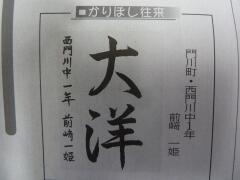 ■かりぼし往来
門川町・西門川中1年
前崎 一姫
大洋
西門川中一年 前崎一姫